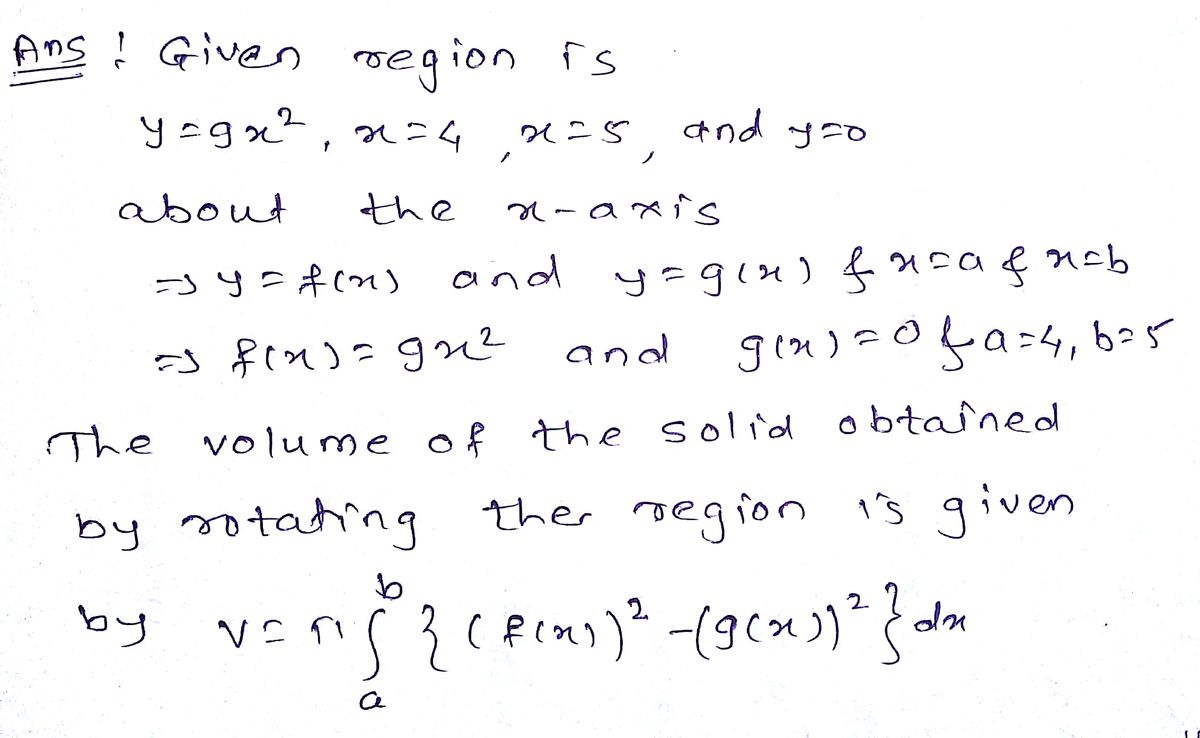 Ans : Given region is
y = 9x², x = 4, x = 5, and y = 0
about the x-axis
⇒ y = f(x) and y = g(x) & x = a & x = b
⇒ f(x) = 9x² and g(x) = 0 & a = 4, b = 5
The volume of the solid obtained
by rotating ther region is given
by V = π ∫ₐᵇ { (f(x))² - (g(x))² } dx